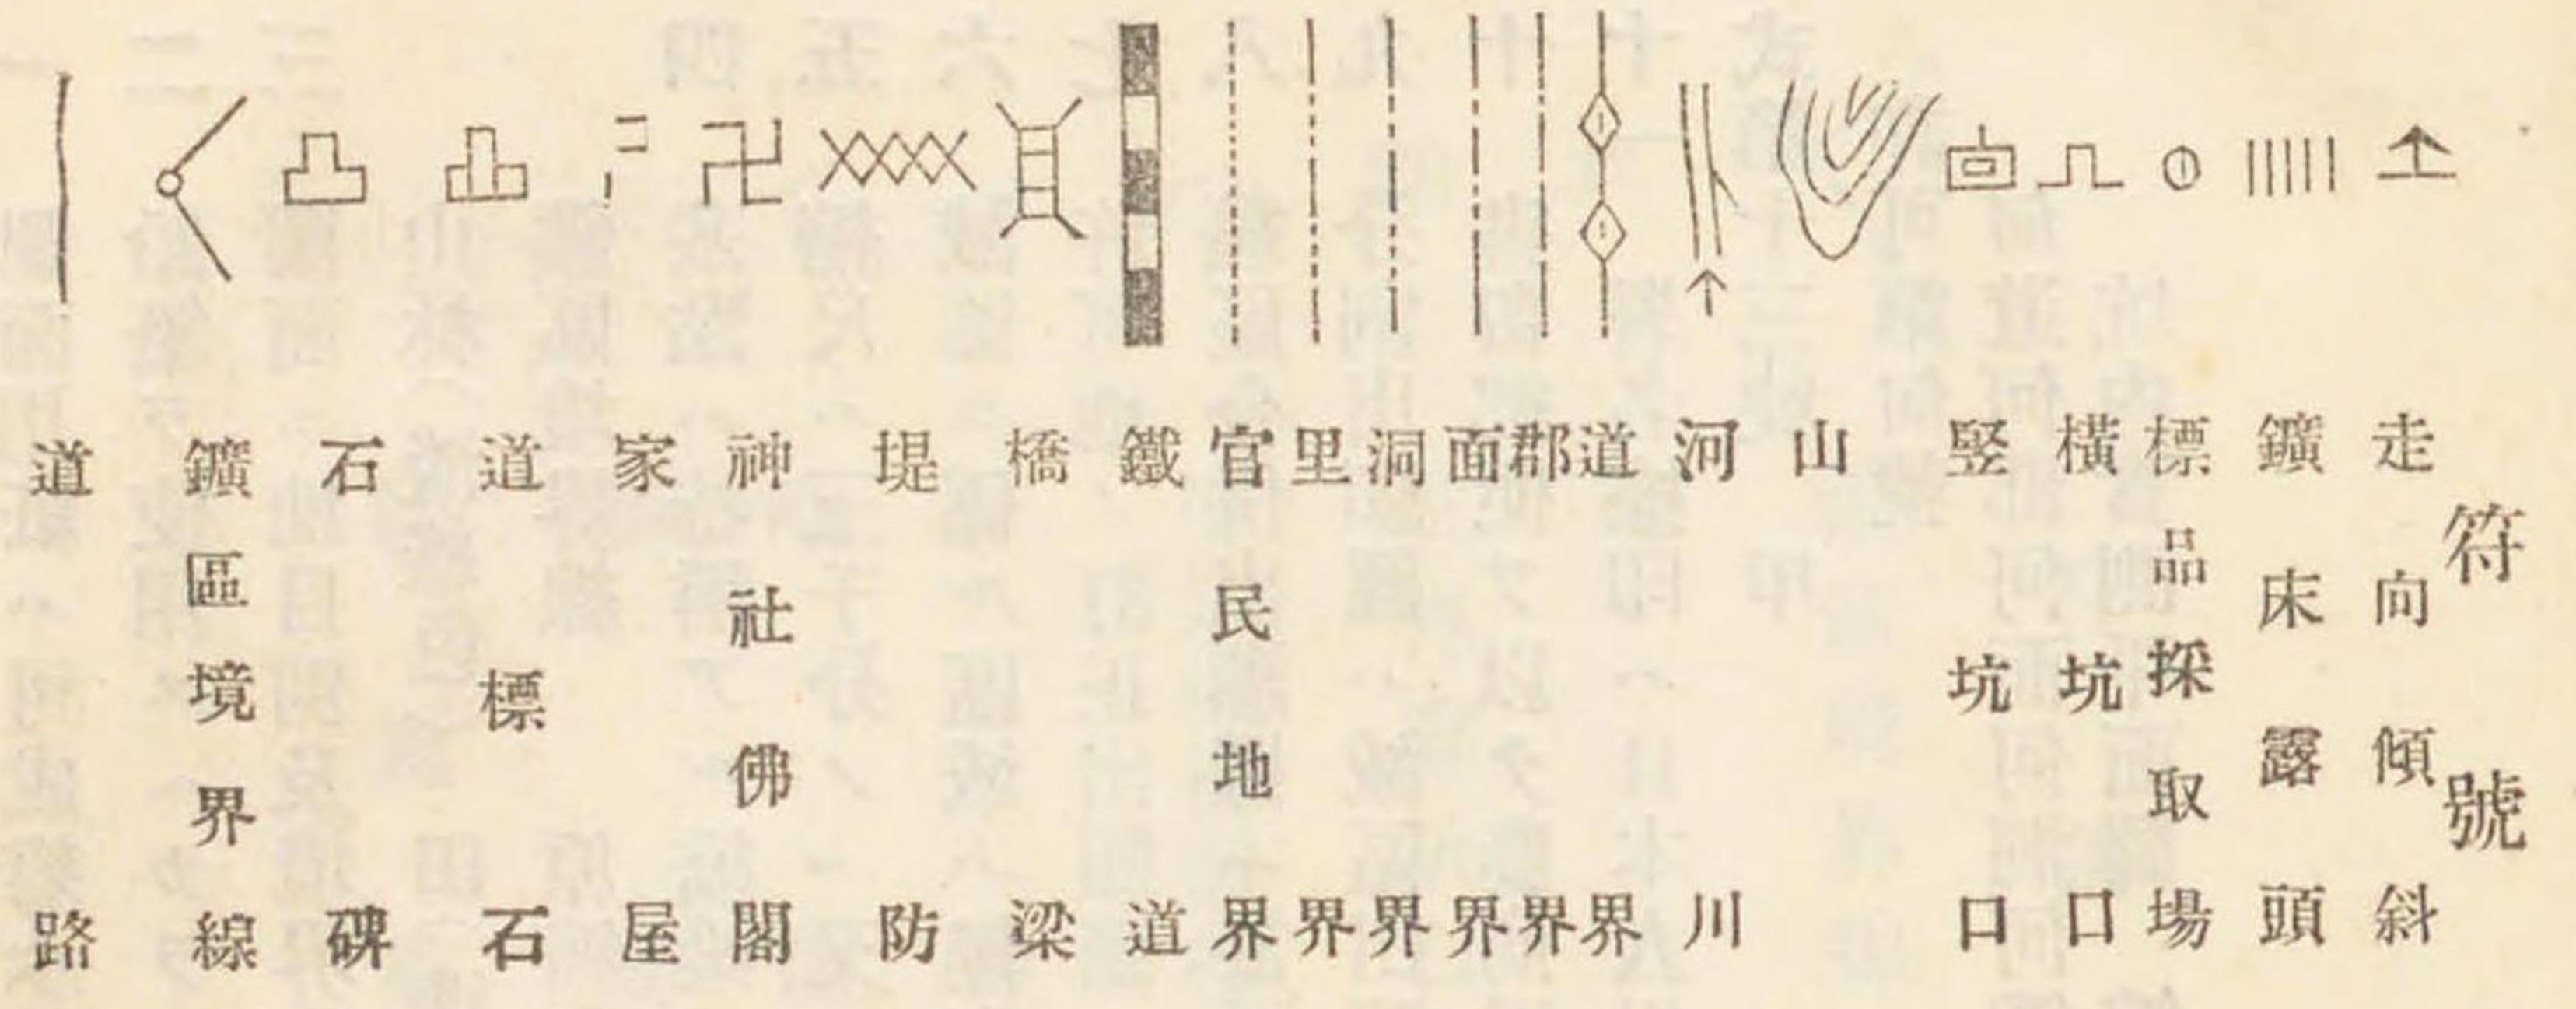 符號
走向傾斜
鑛床露頭
標品採取場
橫坑口
竪坑口
山
河川
道界
郡界
面界
洞界
里界
官民地界
鐵道
橋梁
堤防
神社佛閣
家屋
道標石
石碑
鑛區境界線
道路